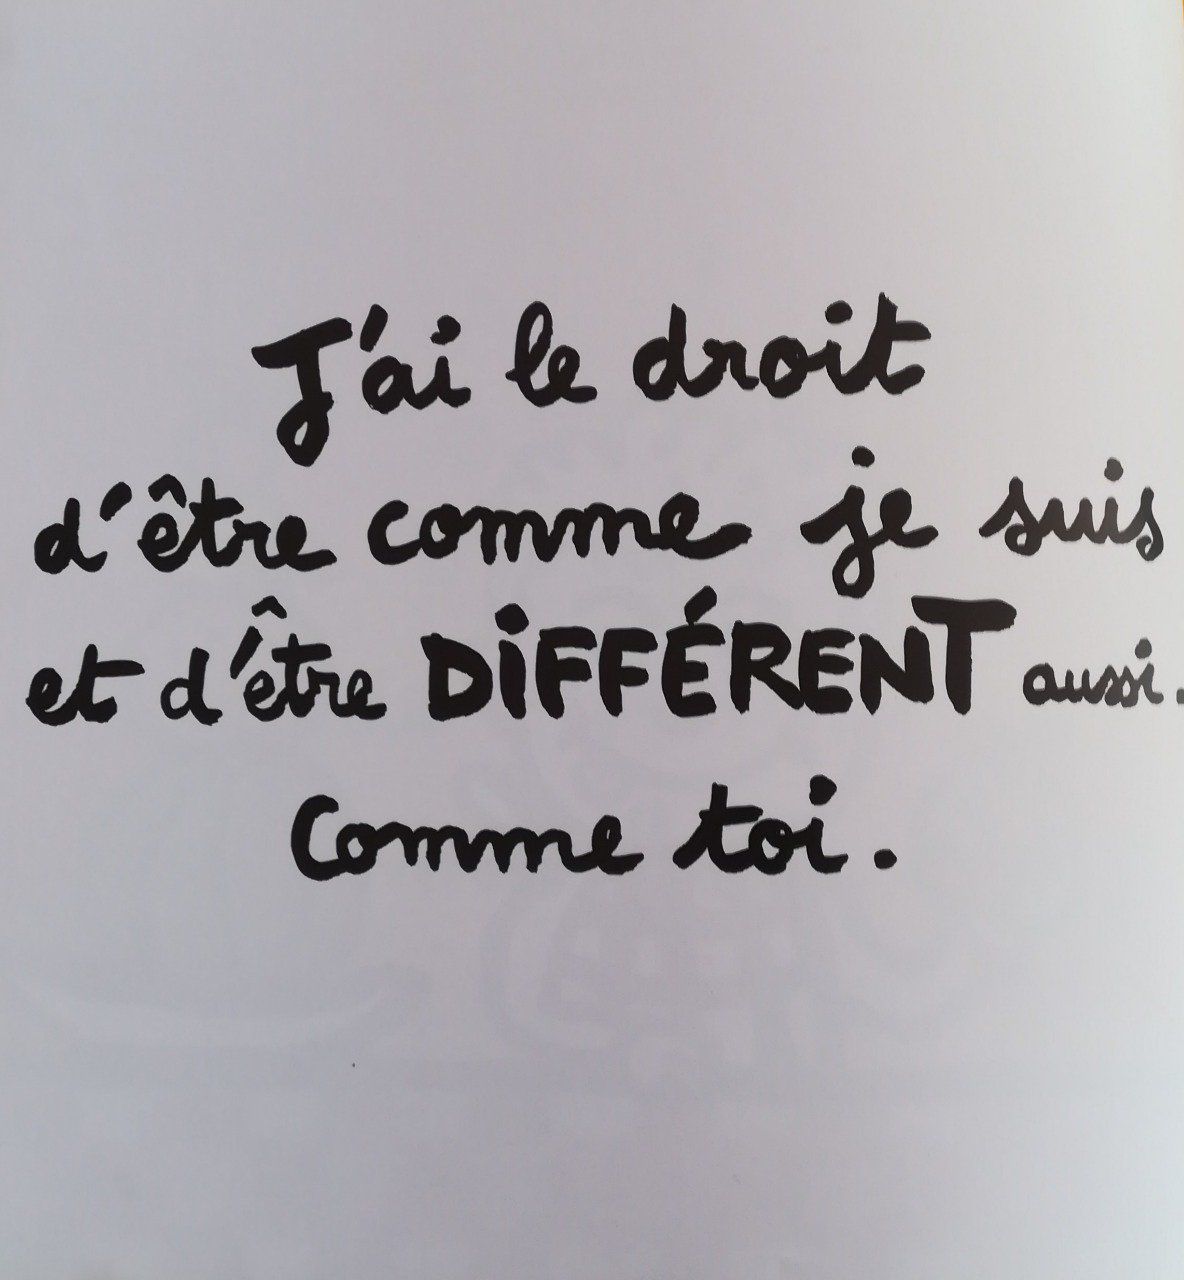 J'ai le droit
d'être comme je suis
et d'être DiFFÉRENT aussi.
Comme toi.